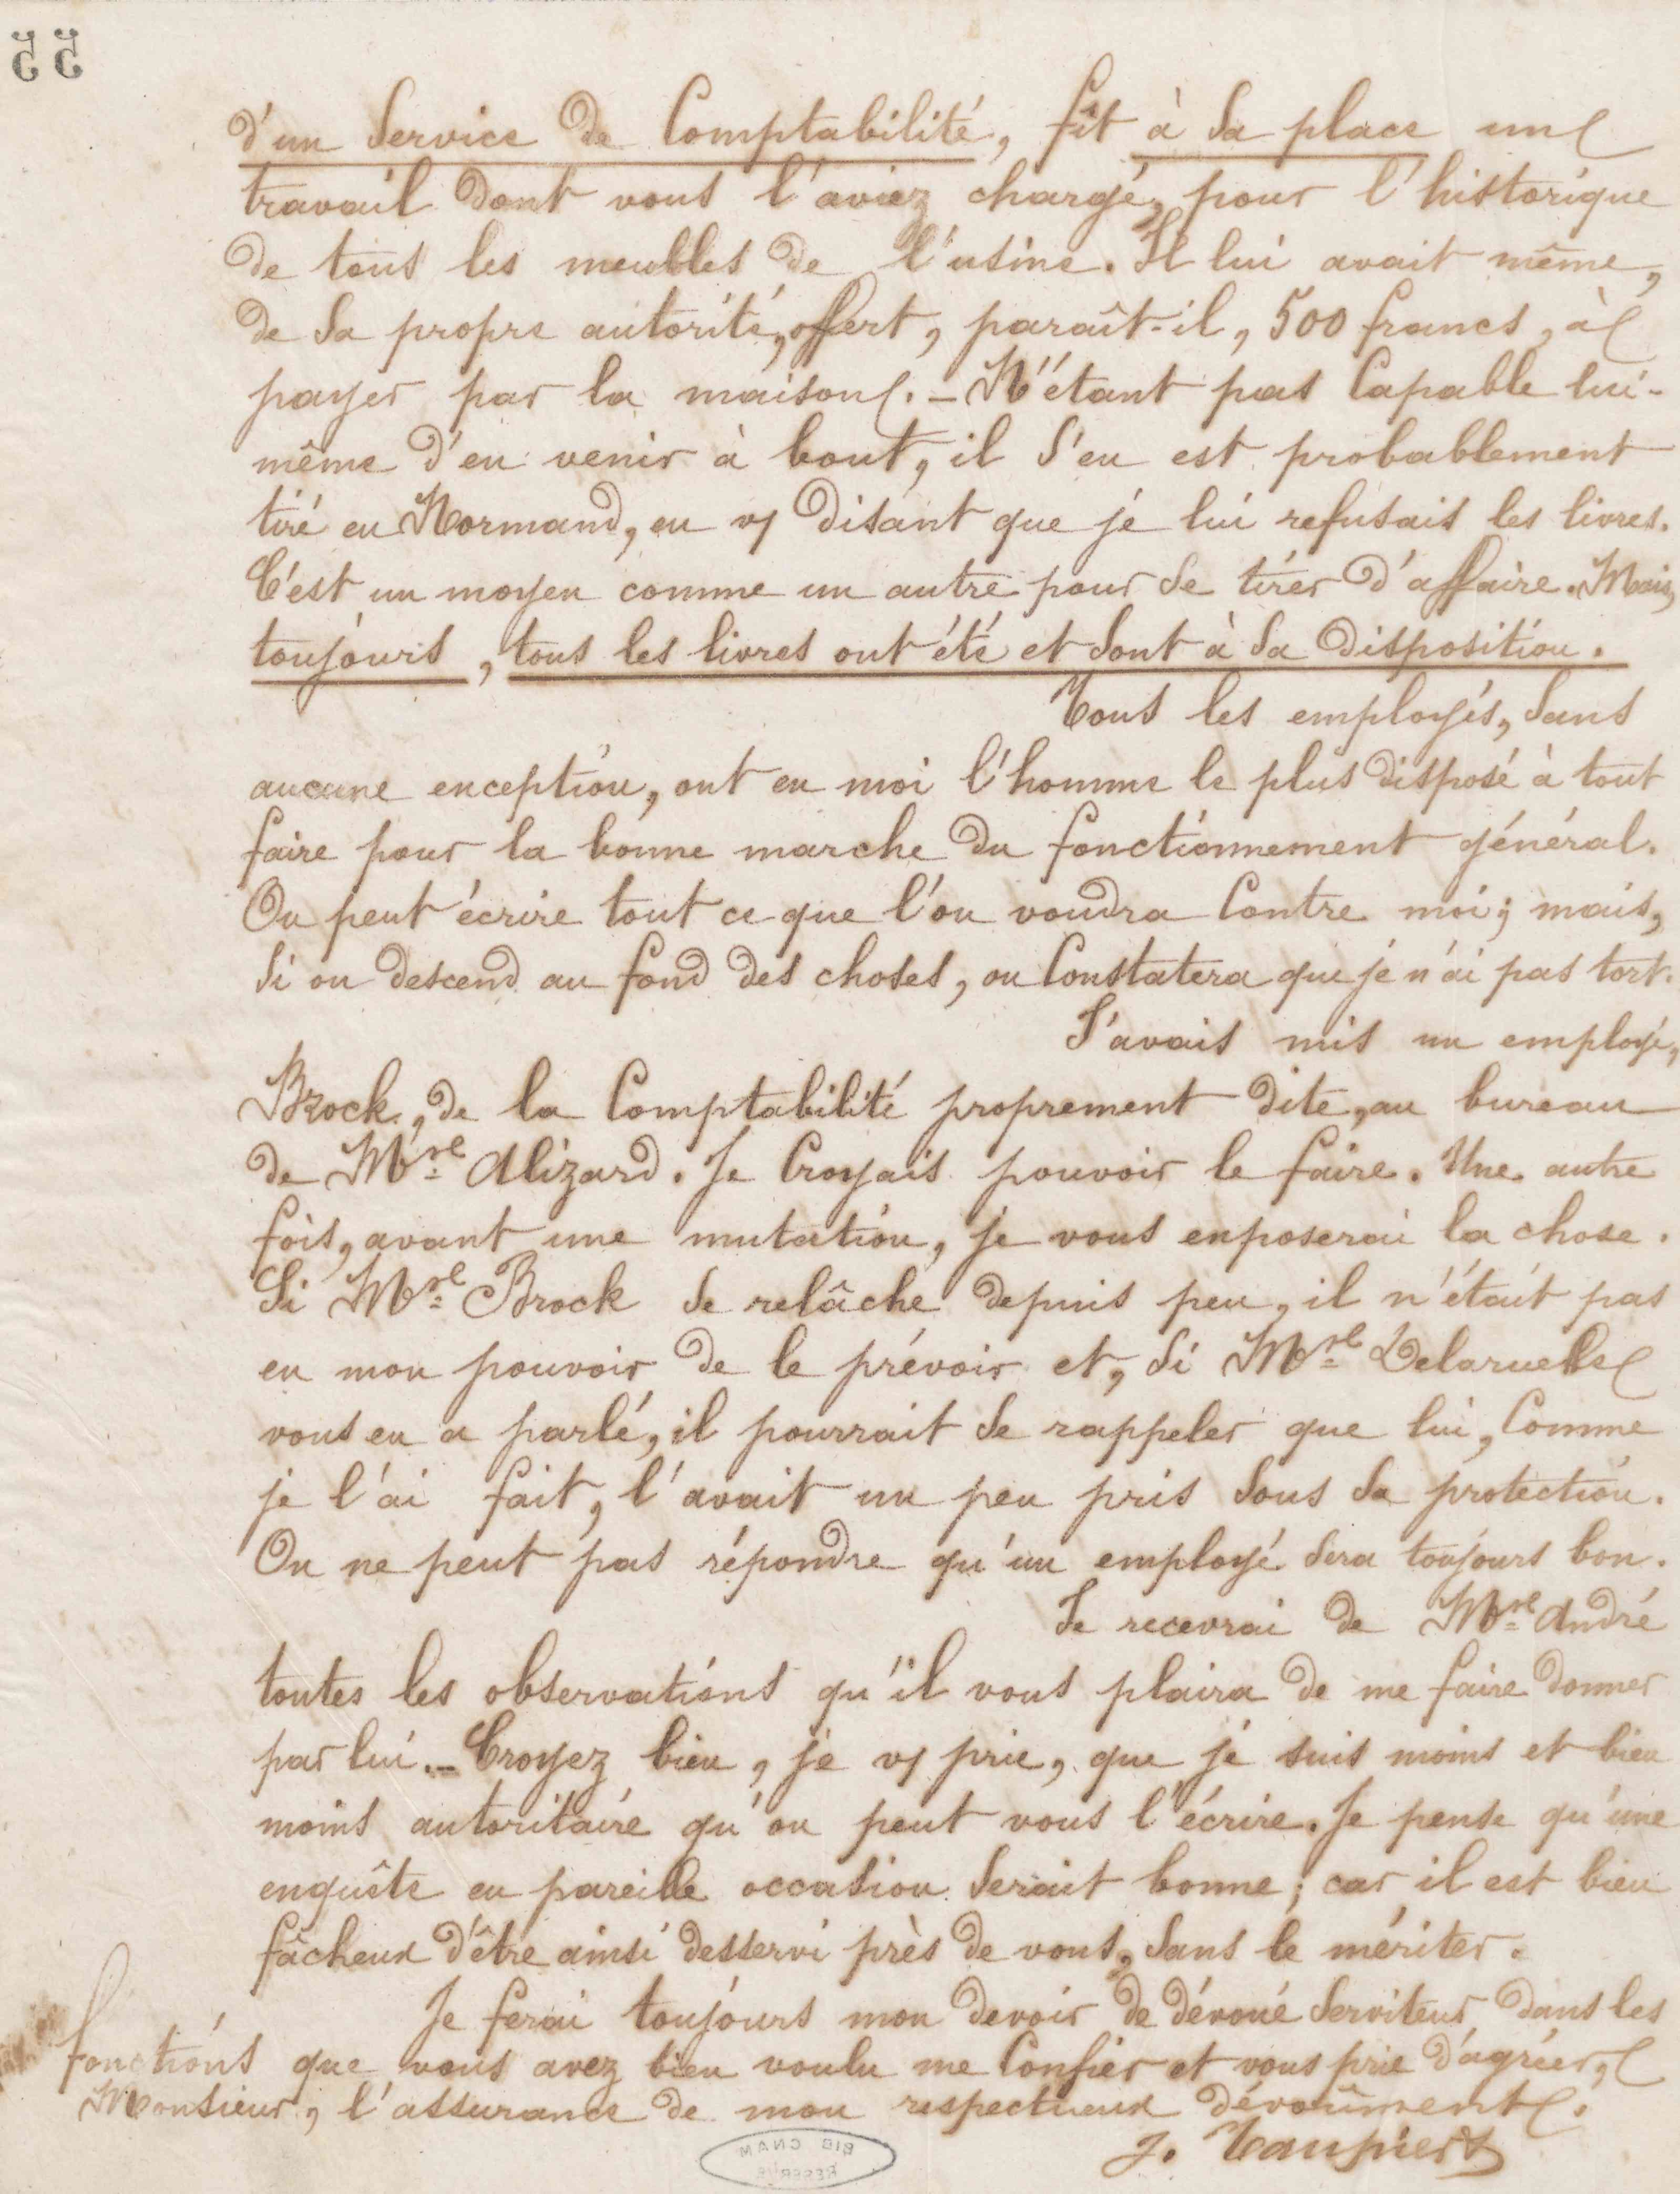 55
d'un Service de Comptabilité, fît à sa place un
travail dont vous l'aviez chargé, pour l'historique
de tous les meubles de l'usine. Il lui avait même,
de sa propre autorité, offert, paraît-il, 500 francs, à
payer par la maison. _ N'étant pas capable lui-
même d'en venir à bout, il s'en est probablement
tiré en Normand, en vs disant que je lui refusais les livres.
C'est un moyen comme un autre pour se tirer d'affaire. Mais,
toujours, tous les livres ont été et sont à sa disposition.
Tous les employés, sans
aucune exception, ont en moi l'homme le plus disposé à tout
faire pour la bonne marche du fonctionnement général.
On peut écrire tout ce que l'on voudra contre moi; mais,
si on descend au fond des choses, on constatera que je n'ai pas tort.
J'avais mis un employé,
Brock, de la Comptabilité proprement dite, au bureau
de Mr Alizard. Je croyais pouvoir le faire. Une autre
fois, avant une mutation, je vous exposerai la chose.
Si Mr Brock se relâche depuis peu, il n'était pas
en mon pouvoir de le prévoir et, si Mr Delaruelle
vous en a parlé, il pourrait se rappeler que lui, comme
je l'ai fait, l'avait un peu pris sous sa protection.
On ne peut pas répondre qu'un employé sera toujours bon.
Je recevrai de Mr André
toutes les observations qu'il vous plaira de me faire donner
par lui. _ Croyez bien, je vs prie, que je suis moins et bien
moins autoritaire qu'on peut vous l'écrire. Je pense qu'une
enquête en pareille occasion serait bonne; car il est bien
fâcheux d'être ainsi desservi près de vous, sans le mériter.
Je ferai toujours mon devoir de dévoué serviteur dans les
fonctions que vous avez bien voulu me confier et vous prie d'agréer,
Monsieur, l'assurance de mon respectueux dévoûment.
J. Taupier
BIB CNAM
RESERVE